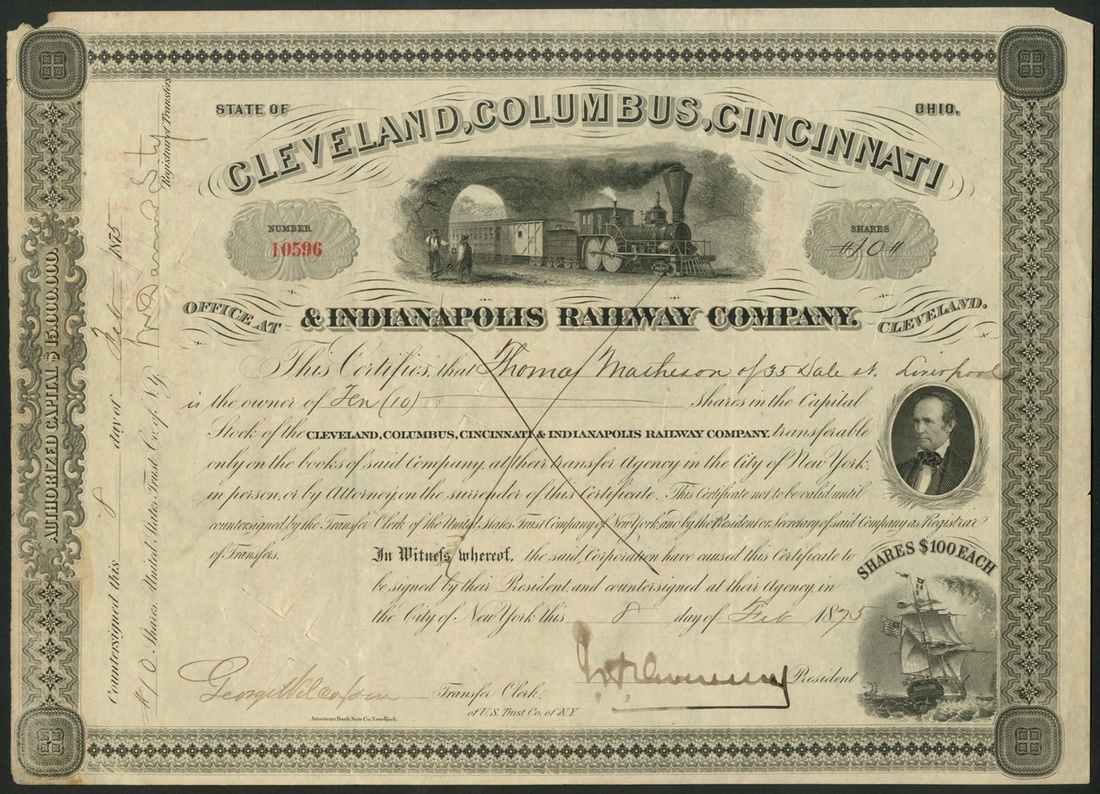 STATE OF
OHIO.
CLEVELAND, COLUMBUS, CINCINNATI
NUMBER
10596
SHARES
#10#
OFFICE AT
& INDIANAPOLIS RAILWAY COMPANY.
CLEVELAND.
This Certifies, that Thomas Matheson of 35 Dale st. Liverpool
is the owner of Ten (10) Shares in the Capital
Stock of the CLEVELAND, COLUMBUS, CINCINNATI & INDIANAPOLIS RAILWAY COMPANY. transferable
only on the books of said Company, at their transfer Agency in the City of New York,
in person, or by Attorney, on the surrender of this Certificate. This Certificate not to be valid until
countersigned by the Transfer Clerk of the United States Trust Company of New York, and by the Resident or Secretary of said Company as Registrar
of Transfers.
In Witness whereof, the said, Corporation have caused this Certificate to
be signed by their President, and countersigned at their Agency, in
the City of New York this 8 day of Feb 1875
SHARES $100 EACH
President
George Wilcoxson Transfer Clerk.
of U.S. Trust Co. of N.Y.
American Bank Note Co. New-York.
AUTHORIZED CAPITAL $15,000,000.
Countersigned this 8 day of Feb 1875
#10 Shares. United States Trust Co. of N.Y.
Registrar of Transfers